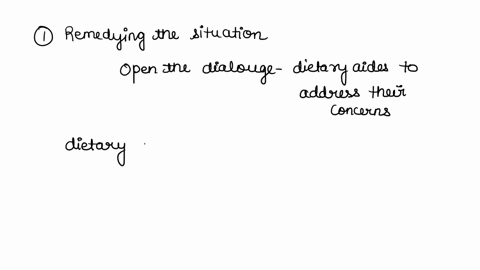 ① Remedying the situation
Open the dialouge- dietary aides to
address their
concerns
dietary